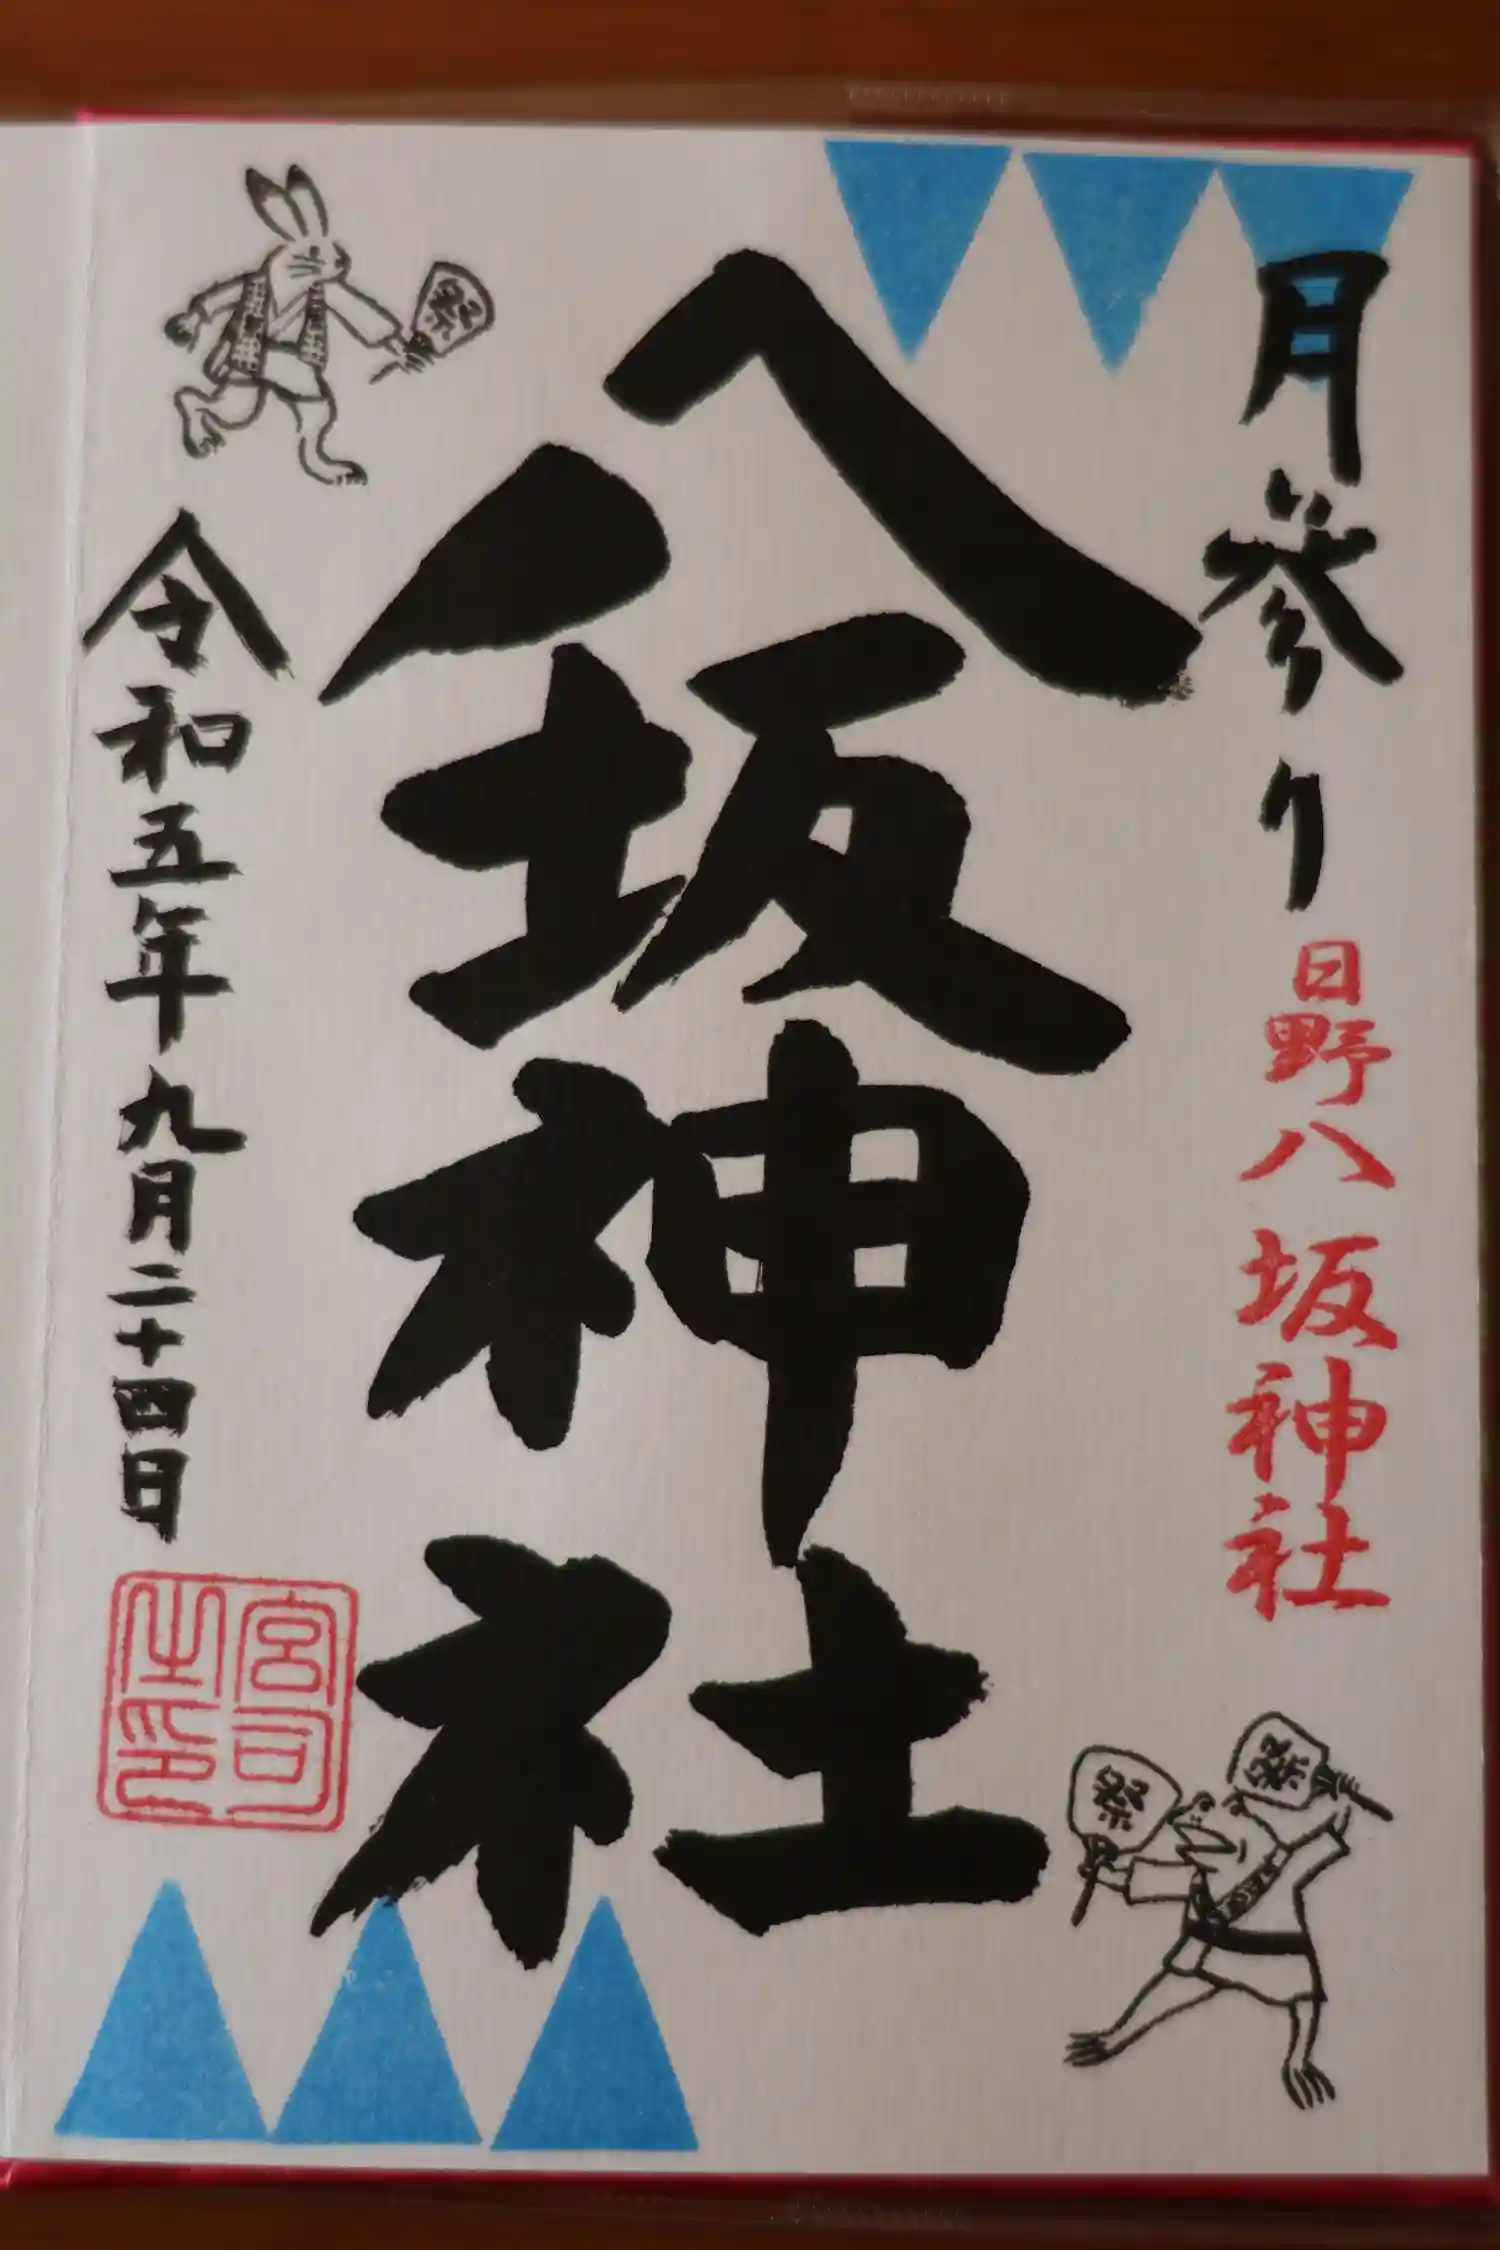 月参り
日野八坂神社
八坂神社
令和五年九月二十四日
宮司
之印
祭
祭
祭